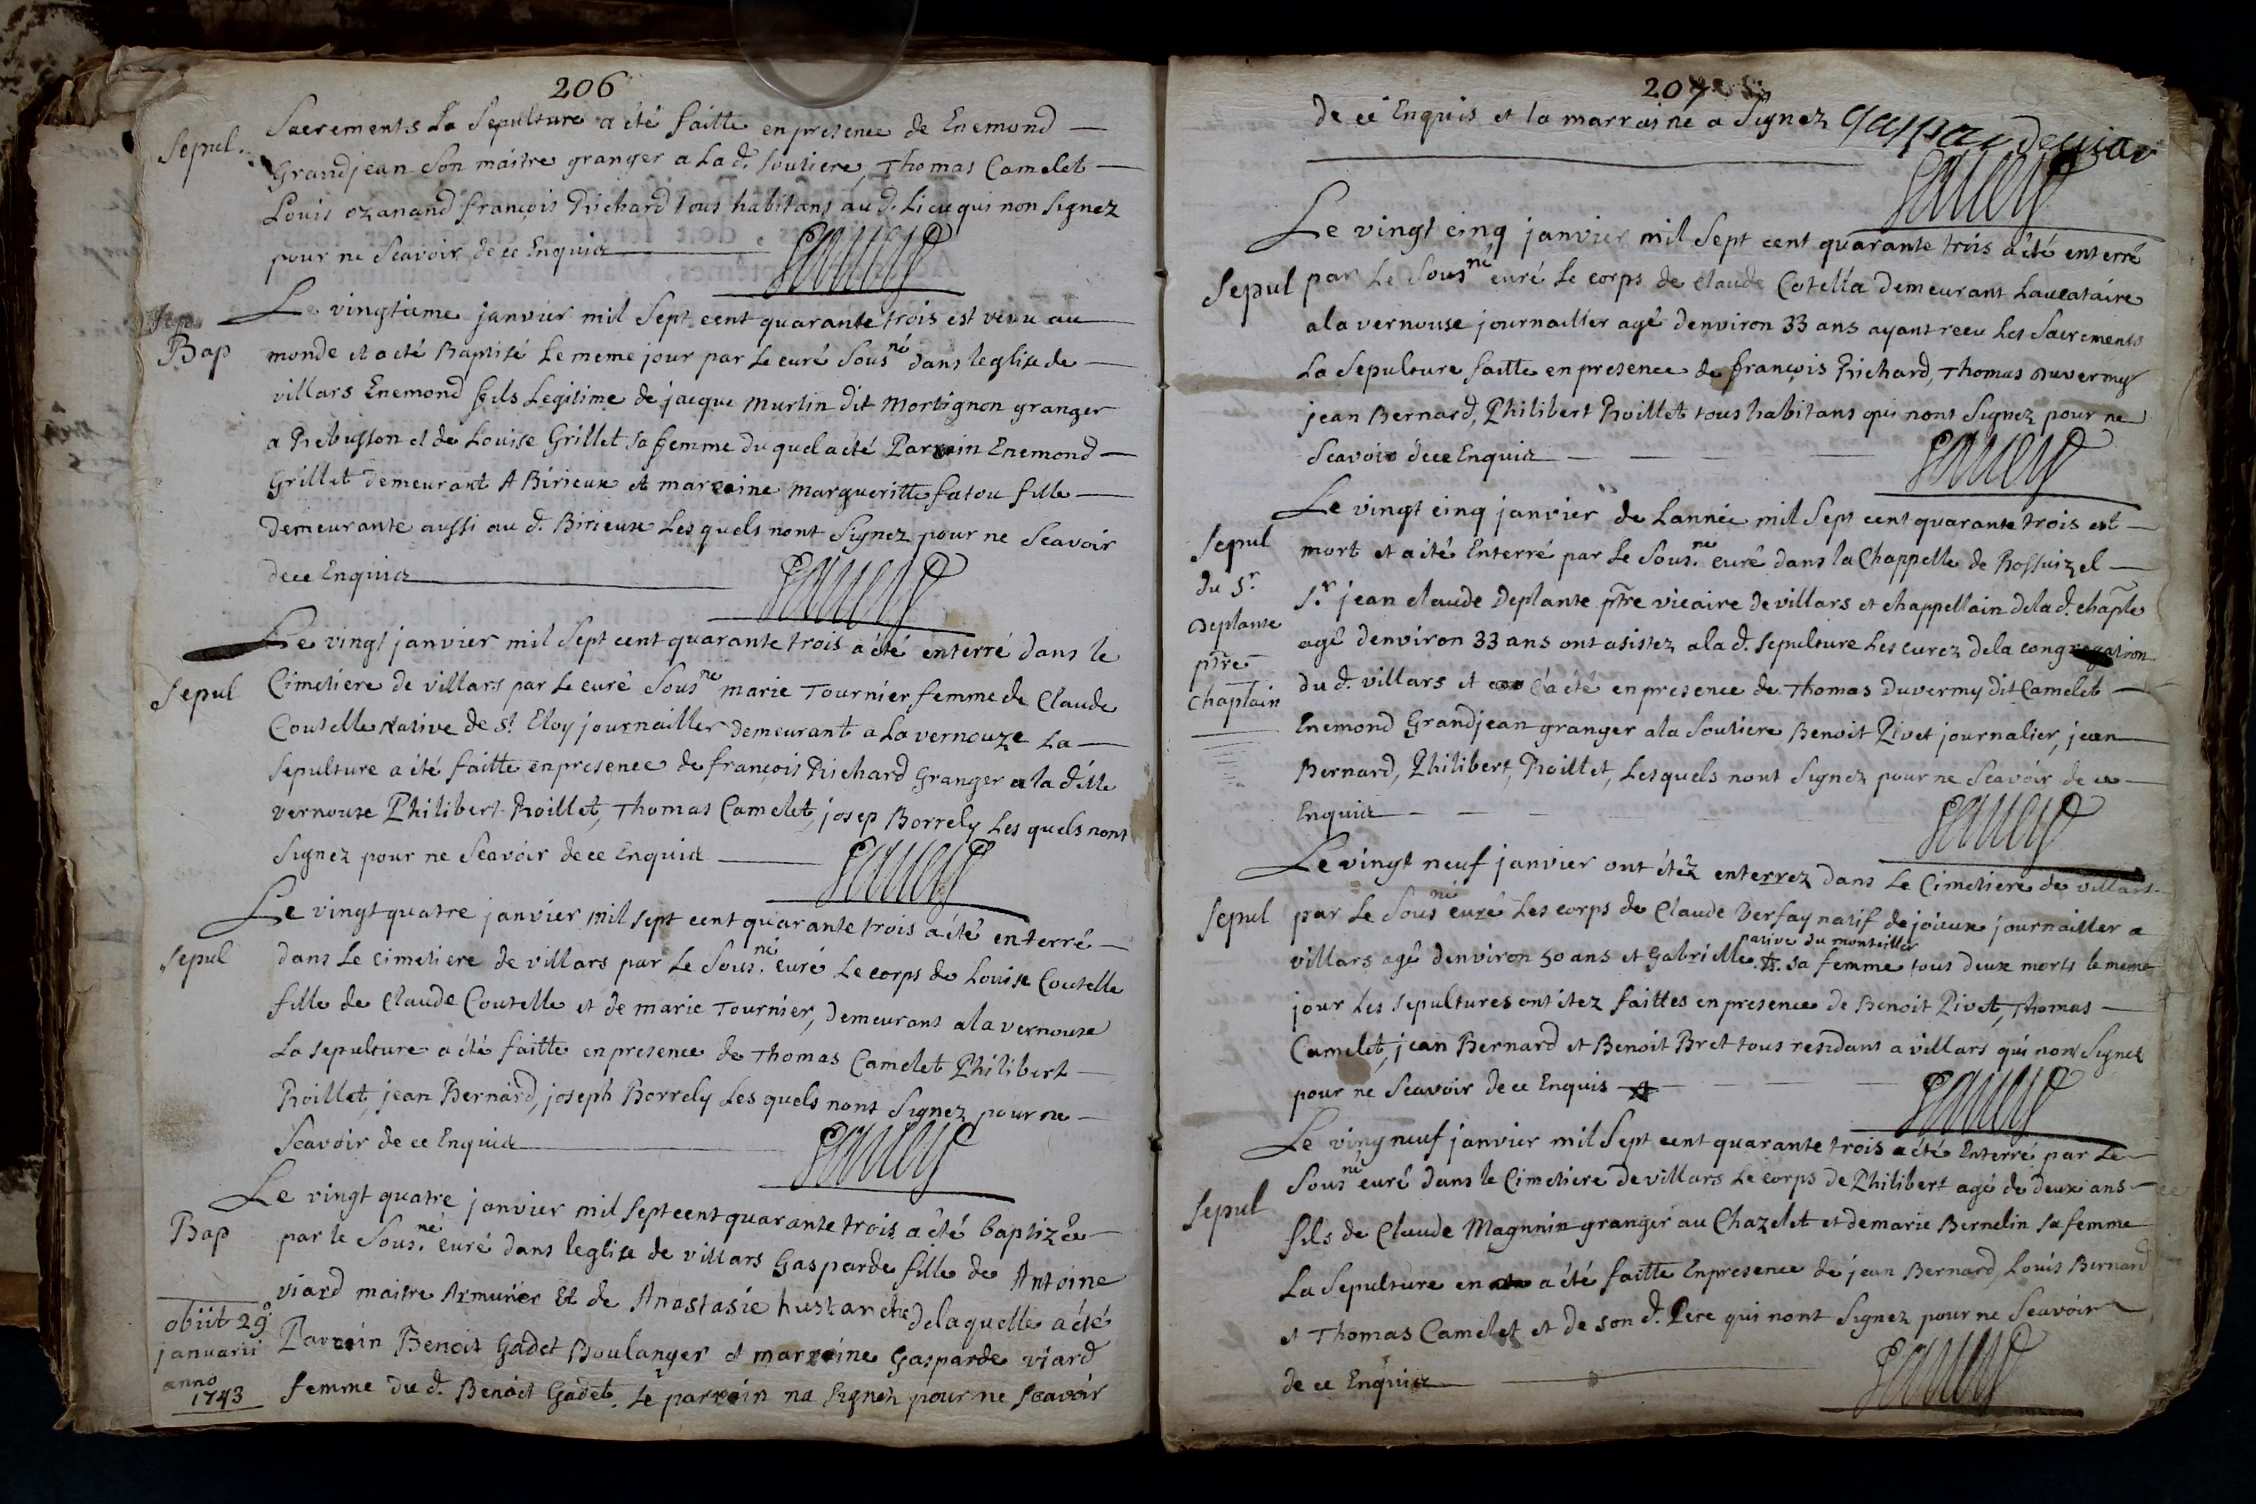 206
Sepul.
Sacrements La Sepulture a été faitte en presence de Enemond
Grandjean Son maitre granger a La d. Soutiere, Thomas Camelet
Louis ozanand françois Richard tous habitans au d. Lieu qui non Signez
pour ne Scavoir de ce Enquis
Bap
Le vingtieme janvier mil Sept cent quarante trois est venu au
monde et a été Baptisé Le meme jour par Le curé Sousné dans leglise de
villars Enemond fils Legitime de jacque Murtin dit Mortignon granger
a Rebusson et de Louise Grillet sa femme du quel a été Parrain Enemond
Grillet demeurant A Birieux et marraine margueritte fatou fille
demeurante aussi au d. Birieux Les quels nont Signez pour ne Scavoir
de ce Enquis
Sepul
Le vingt janvier mil Sept cent quarante trois a été enterré dans le
Cimetiere de villars par Le curé Sousné marie Tournier femme de Claude
Coutelle Native de St. Eloy journailler demeurant a La vernouze La
sepulture a été faitte en presence de françois Richard Granger a la d'itte
vernouse Philibert Roillet, Thomas Camelet, josep Borrely Les quels nont
Signez pour ne Scavoir de ce Enquis
Sepul
Le vingt quatre janvier mil sept cent quarante trois a été enterré
dans Le cimetiere de villars par Le Sous.né curé Le corps de Louise Coutelle
fille de Claude Coutelle et de marie Tournier, demeurans a la vernouse
La sepulture a été faitte en presence de Thomas Camelet Philibert
Roillet, jean Bernard, joseph Borrely Les quels nont Signez pour ne
Scavoir de ce Enquis
Bap
Le vingt quatre janvier mil Sept cent quarante trois a été baptizée
par le Sous.né curé dans leglise de villars Gasparde fille de Antoine
viard maitre Armurier Et de Anastasie hustarche de laquelle a été
Parrain Benoit Gadet Boulanger et marraine Gasparde viard
femme du d. Benoit Gadet. Le parrain na Signez pour ne scavoir
obiit 29
januarii
anno
1743
207
de ce Enquis et la marraine a Signez Gasparde viar
Sepul
Le vingt cinq janvier mil Sept cent quarante trois a été enterré
par Le Sousné curé Le corps de claude Cotella Demeurant Laucataire
a la vernouse journailler agé denviron 33 ans ayant receu Les Sacrements
La Sepulture faitte en presence de françois Richard, Thomas Duvermy
jean Bernard, Philibert Roillet tous habitans qui nont Signez pour ne
Scavoir de ce Enquis
Sepul
du Sr.
Deplante
ptre
chaplain
Le vingt cinq janvier de Lannée mil Sept cent quarante trois est
mort et a été Enterré par Le Sous.né curé dans la Chappelle de Rossuizel
Sr. jean claude Deplante ptre vicaire de villars et chappellain de la d. chaple
agé denviron 33 ans ont asistez a la d. sepulture Les curez de la congregation
du d. villars et c'a été en presence de Thomas Duvermy dit Camelet
Enemond Grandjean granger a la Soutiere Benoit Pivet journalier, jean
Bernard, Philibert, Roillet, Lesquels nont Signez pour ne Scavoir de ce
Enquis
Sepul
Le vingt neuf janvier ont étéz enterrez dans Le Cimetiere de villars
par Le Sousné curé Les corps de Claude Versay natif de joieux journailler a
villars agé denviron 50 ans et Gabrielle native du monteiller sa femme tous deux morts le meme
jour Les sepultures ont étez faittes en presence de Benoit Pivet, Thomas
Camelet, jean Bernard et Benoit Bret tous residans a villars qui non Signez
pour ne Scavoir de ce Enquis
Sepul
Le ving neuf janvier mil Sept cent quarante trois a été Enterré par Le
Sousné curé dans le Cimetiere de villars Le corps de Philibert agé de deux ans
fils de Claude Magnnin granger au Chazelet et de marie Bernelin sa femme
La Sepulture en a été faitte En presence de jean Bernard, Louis Bernard
et Thomas Camelet et de son d. Pere qui nont Signez pour ne Scavoir
de ce Enquis